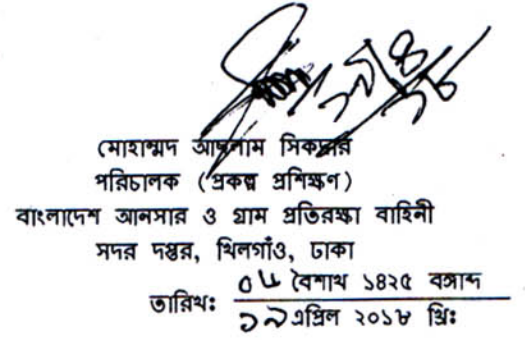 ১৯/৪/১৮
মোহাম্মদ আছলাম সিকদার
পরিচালক (প্রকল্প প্রশিক্ষণ)
বাংলাদেশ আনসার ও গ্রাম প্রতিরক্ষা বাহিনী
সদর দপ্তর, খিলগাঁও, ঢাকা
০৬ বৈশাখ ১৪২৫ বঙ্গাব্দ
তারিখঃ
১৯ এপ্রিল ২০১৮ খ্রিঃ